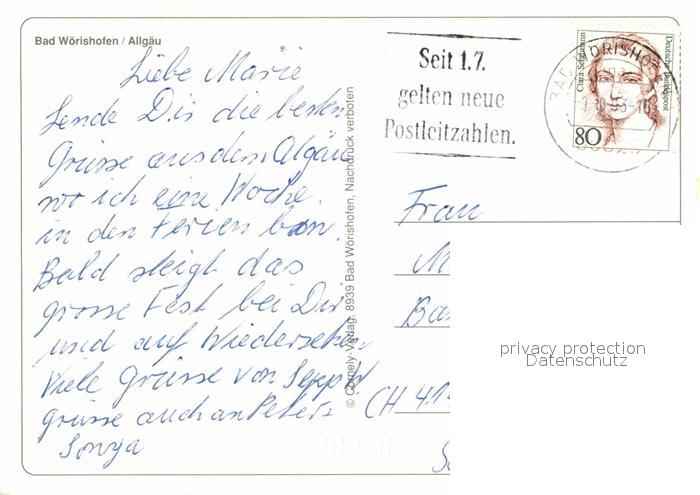 Bad Wörishofen / Allgäu
Liebe Marie
Sende Dir die besten
Grüsse aus dem Algäu
wo ich eine Woche
in den Ferien bin.
Bald steigt das
grosse Fest bei Dir
und auf Wiedersehen
Viele Grüsse von Seppi
grüsse auch an Peter
Sonya
© Cornely-Verlag, 8939 Bad Wörishofen, Nachdruck verboten
Seit 1.7.
gelten neue
Postleitzahlen.
BAD WÖRISHOFEN
Clara Schumann
Deutsche Bundespost
80
Frau
M
Ba
CH 41
privacy protection
Datenschutz